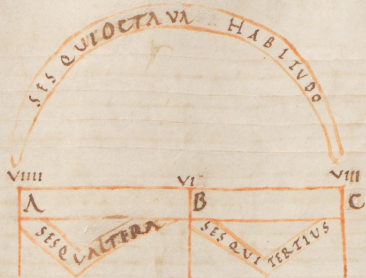 SESQUIOCTAVA HABITUDO
VIIII VI VIII
A B C
SESQUALTERA SESQUI TERTIUS